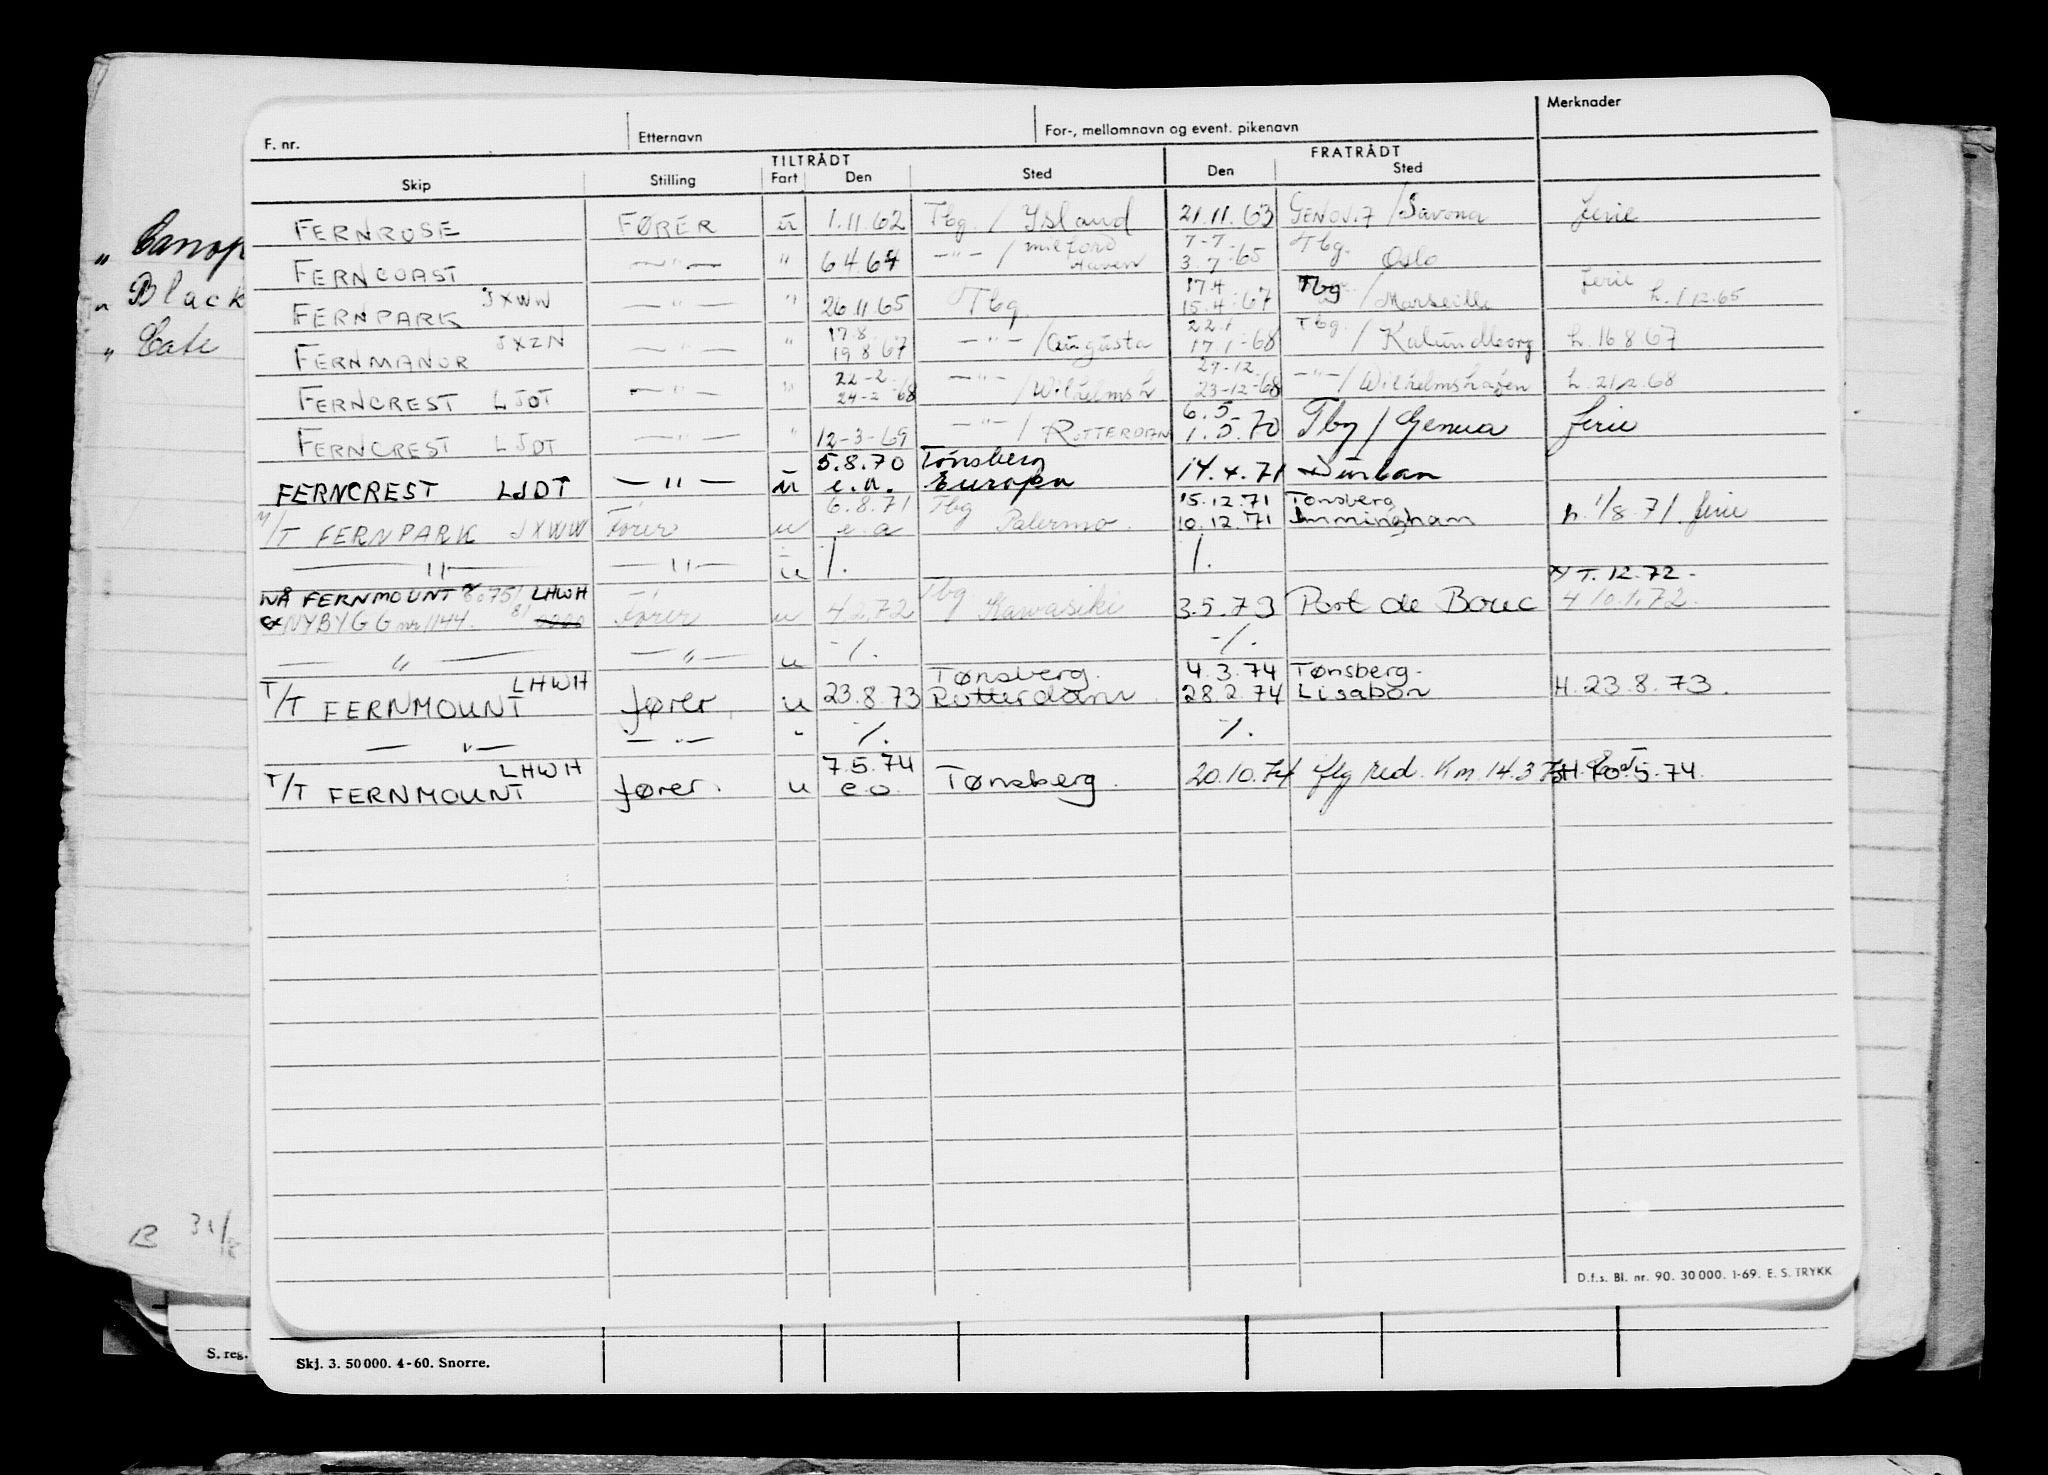 F. nr. Etternavn For-, mellomnavn og event. pikenavn Merknader
TILTRÅDT FRATRÅDT
Skip Stilling Fart Den Sted Den Sted
FERNROSE FØRER u 1.11.62 Tbg. / Island 21.11.63 / Savona ferie
FERNCOAST — " — " 6 4 64 — " — / milford haven 7-7- 3.7-65 Tbg. Oslo
FERNPARK JXWW — " — " 26.11.65 Tbg 17.4 15.4.-67 Tbg / Marseille ferie h. 1 12.65
FERNMANOR JXZN — " — " 17.8. 19 8 67 — " — / Augusta 22.1 17 1-68 Tbg. / Kalundborg h. 16 8 67
FERNCREST LJDT — " — " 22-2- 24-2-68 — " — / Wilhelmsh 27-12. 23-12-68 — " — / Wilhelmshaven h. 21.2.68
FERNCREST LJDT — " — " 12-3-69 — " — / ROTTERDAM 6.5 1.5.70 Tbg / Genua ferie
FERNCREST LJDT — " — u 5.8.70 e.a. Tønsberg Europa 14.4.71 Durban
M/T FERNPARK JXWW Fører u 6.8.71 e.a Tbg Palermo. 15.12.71 10.12.71 Tønsberg Immingham h. 1/8.71. ferie
— " — — " — u ·/. ·/.
NÅ FERNMOUNT LHWH
ex NYBYGG nr 1144. Fører u 4.2.72 Tbg Kawasiki 3.5.73 Port de Bouc 12.72 - 10.1.72.
— " — — " — u ·/. ·/.
T/T FERNMOUNT LHWH fører. u 23.8.73 Tønsberg. Rotterdam. 4.3.74 28.2.74 Tønsberg. Lisabon H. 23.8.73.
— " — — " — " ·/. ·/.
T/T FERNMOUNT LHWH fører. u 7.5.74 e.o. Tønsberg. 20.10.74 flg red. Km. 14.3 H. 10.5.74.
D.f.s. Bl. nr. 90. 30 000. 1-69. E. S. TRYKK
" Black
" Cate
B 31/12
S. reg.
Skj. 3. 50 000. 4-60. Snorre.